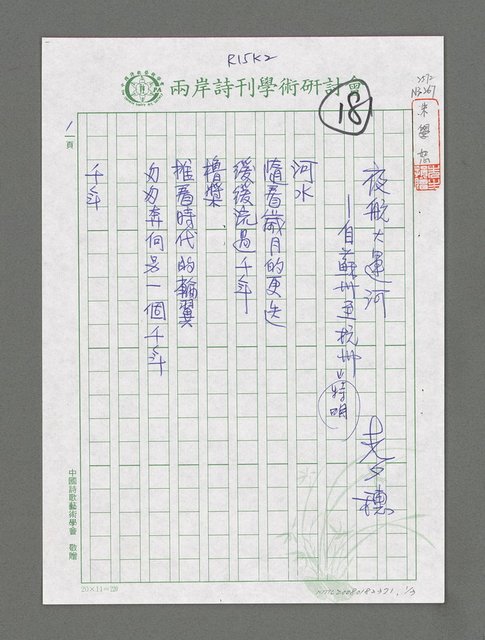 R15K2
兩岸詩刊學術研討會
18
朱學恕
夜航大運河
—自蘇州至杭州
特明
河水
隨着歲月的更迭
緩緩流過千年
櫓槳
推着時代的輪翼
匆匆奔向另一個千年
千年
1頁
中國詩歌藝術學會 敬贈
20×14=280
NMTL20080182371, 1/3